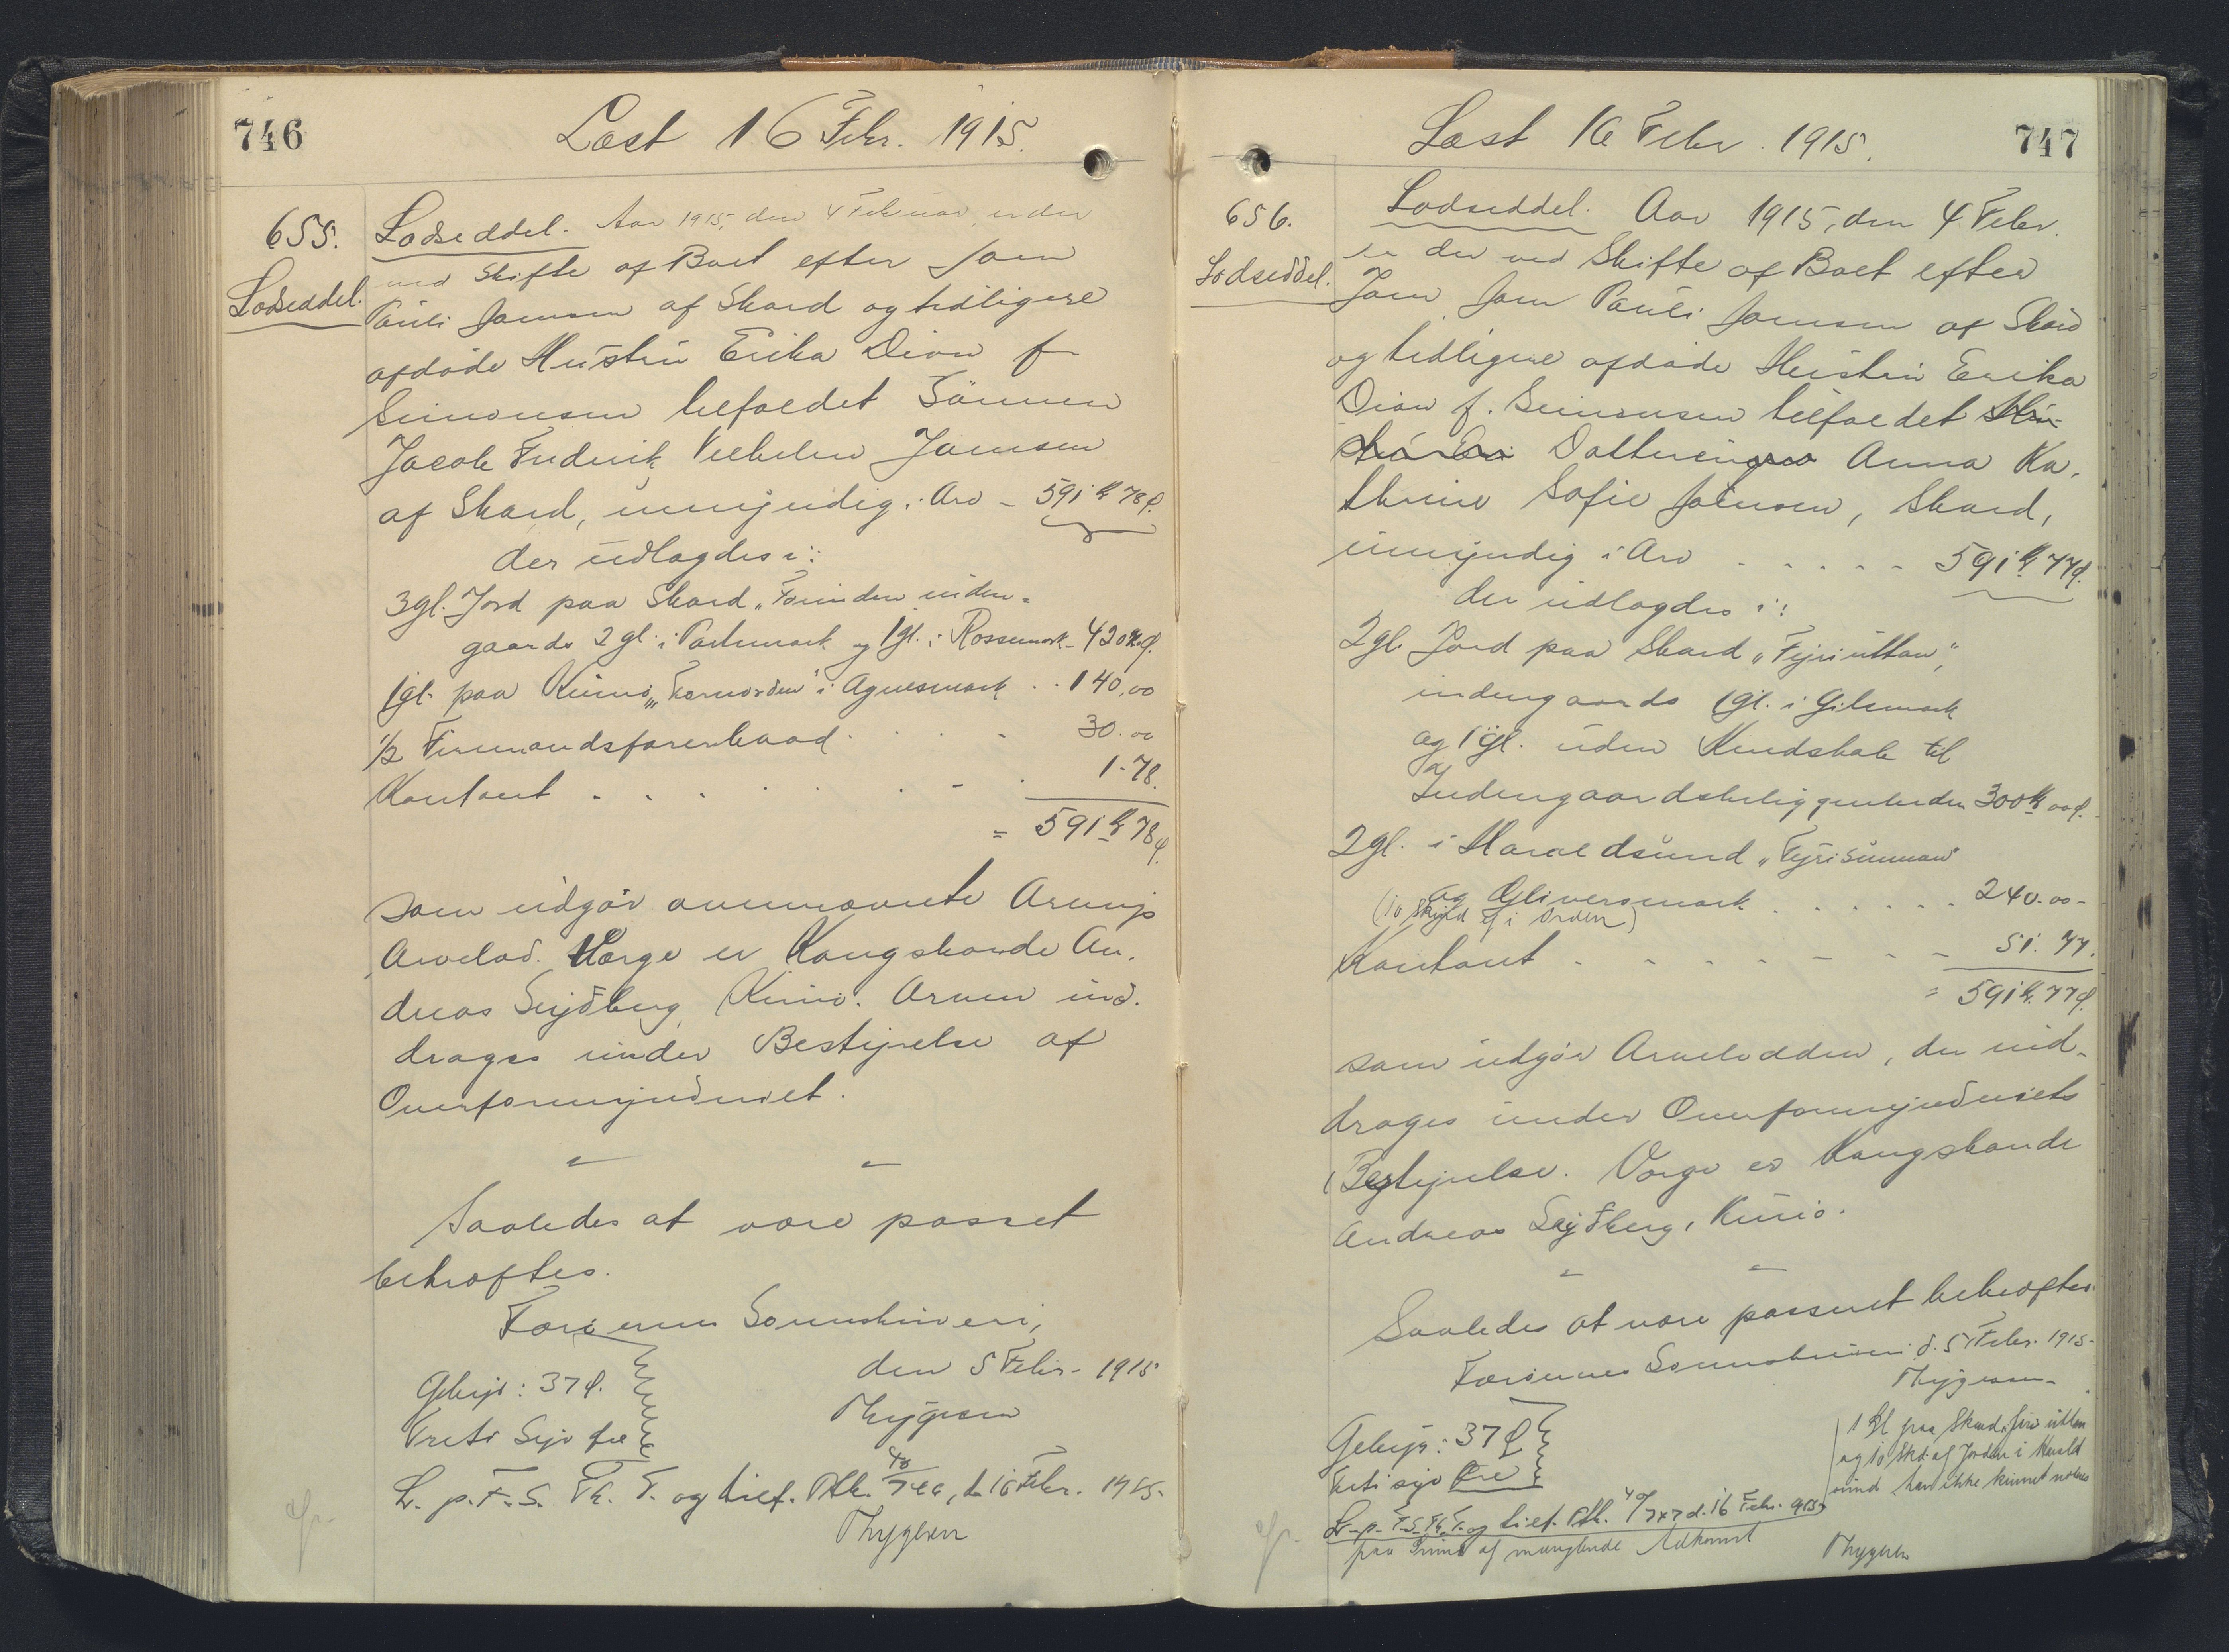 746
Læst 16 Febr. 1915.
655.
Lodseddel.
Lodseddel. Aar 1915, den 4 Februar er der
ved Skifte af Boet efter Joen
Pauli Joensen af Skard og tidligere
afdøde Hustru Erika Dion f
Simonsen tilfaldet Sønnen
Jacob Frederik Vilhelm Joensen
af Skard, umyndig i Arv - 591 Kr 78 Ø.
der udlagdes i:
3 gl. Jord paa Skard, inden-
gaards 2 gl. i og 1 gl. i Rossemork - 420 Kr Ø.
1 gl. paa Kunø, i Agnesmork . . 140,00
1/2 Firmandsfarerbaad . . . . 30.00
Kontant . . . . . . . 1-78.
= 591 Kr 78 Ø.
som udgør ovennævnte Arvings
Arvelod. Værge er Kongsbonde An-
dreas Sejdberg, Kunø. Arven ind-
drages under Bestyrelse af
Overformynderiet.
Saaledes at være passet
bekræftes.
Færøernes Sorenskriveri,
den 5 Febr. 1915
Thygesen
Gebyr: 37 Ø.
Treti Syv Øre
L. p. F. S. Th. T. og tilf. Ptb. 40/746, d. 16 Febr. 1915.
Thygesen
747
Læst 16 Febr. 1915.
656.
Lodseddel.
Lodseddel. Aar 1915, den 4 Febr.
er der ved Skifte af Boet efter
Joen Joen Pauli Joensen af Skard
og tidligere afdøde Hustru Erika
Dion f. Simonsen tilfaldet
Datteren Anna Ka-
thrine Sofie Joensen, Skard,
umyndig i Arv . . . . . 591 Kr 77 Ø.
der udlagdes i:
2 gl. Jord paa Skard "Fyri uttan",
indengaards 1 gl. i Gilsmork
og 1 gl. uden Kendskab til
Indengaardsbeliggenheden 300 Kr 00 Ø.
2 gl. i Haraldsund "Fyri sunnan"
og Oliversmork . . . . . . 240.00 -
(10 Skind ej i Orden)
Kontant . . . . - - - 51.77.
= 591 Kr. 77 Ø.
som udgør Arvelodden, der ind-
drages under Overformynderiets
Bestyrelse. Værge er Kongsbonde
Andreas Sejdberg, Kunø.
Saaledes at være passeret bekræftes.
Færøernes Sorenskriveri d. 5 Febr. 1915.
Thygesen.
Gebyr: 37 Ø
Treti syv Øre
1 Gl paa Skard, firi uttan
og 10 Skd. af Jorden i Harald
sund har ikke kunnet noteres
L. p. F. S. Th. T. og tilf. Ptb. 40/747 d. 16 Febr. 1915
paa Grund af manglende Adkomst
Thygesen